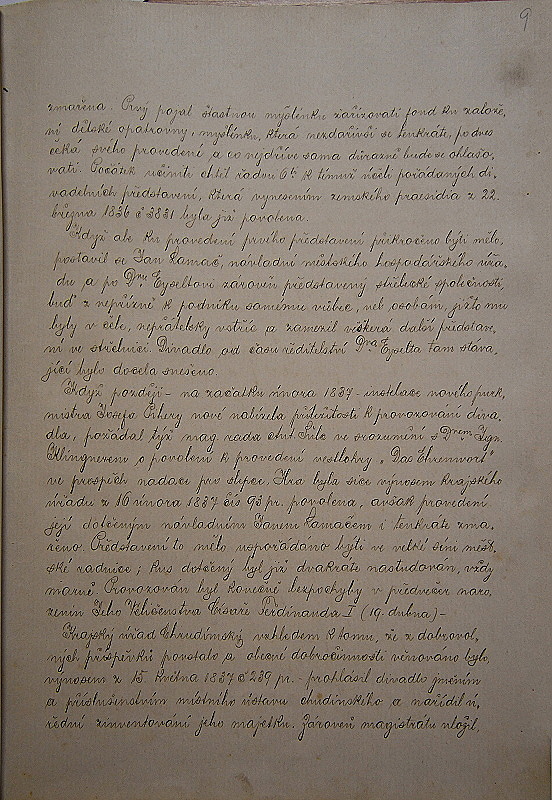 9
zmařena. Prvý pojal šťastnou myšlénku zařizovati fond ku založe,
ní dětské opatrovny, myšlénku, která nezdařivši se tenkráte, podnes
čeká svého provedení a co nejdříve sama důrazně bude se ohlašo,
vati. Počátek učiniti chtěl řadou 6ti k témuž účeli pořádaných di,
vadelních představení, která vynesením zemského praesidia z 22.
března 1836 č 3831 byla již povolena.
Když ale ku provedení prvího představení přikročeno býti mělo,
postavil se Jan Lamač, návladní městského hospodářského úřa,
du a po Dru Eyseltovi zároveň představený střelecké společnosti,
buď z nepřízně k podniku samému vůbec, neb osobám, jižto mu
byly v čele, nepřátelsky vstříc a zamezil veškerá další předsta,
ní ve střelnici. Divadlo od času ředitelství Dra Eyselta tam stáva,
jící bylo docela snešeno.
Když později - na začátku února 1837 - instalace nového purk,
mistra Josefa nové nabízela příležitosti k provozování diva,
dla, požádal týž mag. rada Ant. ve srozumění s Drem Ign.
Klingnerem o povolení k provedení veselohry „Das Ehrenwort"
ve prospěch nadace pro slepce. Hra byla sice výnosem krajského
úřadu z 16 února 1837 čís 93 pr. povolena, avšak provedení
její dotčeným návladním Janem Lamačem i tenkráte zma,
řeno. Představení to mělo uspořádáno býti ve velké síni měst,
ské radnice; kus dotčený byl již dvakráte nastudován, vždy
marně. Provozován byl konečně bezpochyby v předvečer naro,
zenin Jeho Veličenstva Císaře Ferdinanda I (19. dubna) -
Krajský úřad Chrudimský vzhledem k tomu, že z dobrovol,
ných příspěvků povstalo, a obecné dobročinnosti věnováno bylo,
výnosem z 15 května 1837 č 289 pr. - prohlásil divadlo jměním
a příslušenstvím místního ústavu chudinského a nařídil ú,
řední zinventování jeho majetku. Zároveň magistrátu uložil,